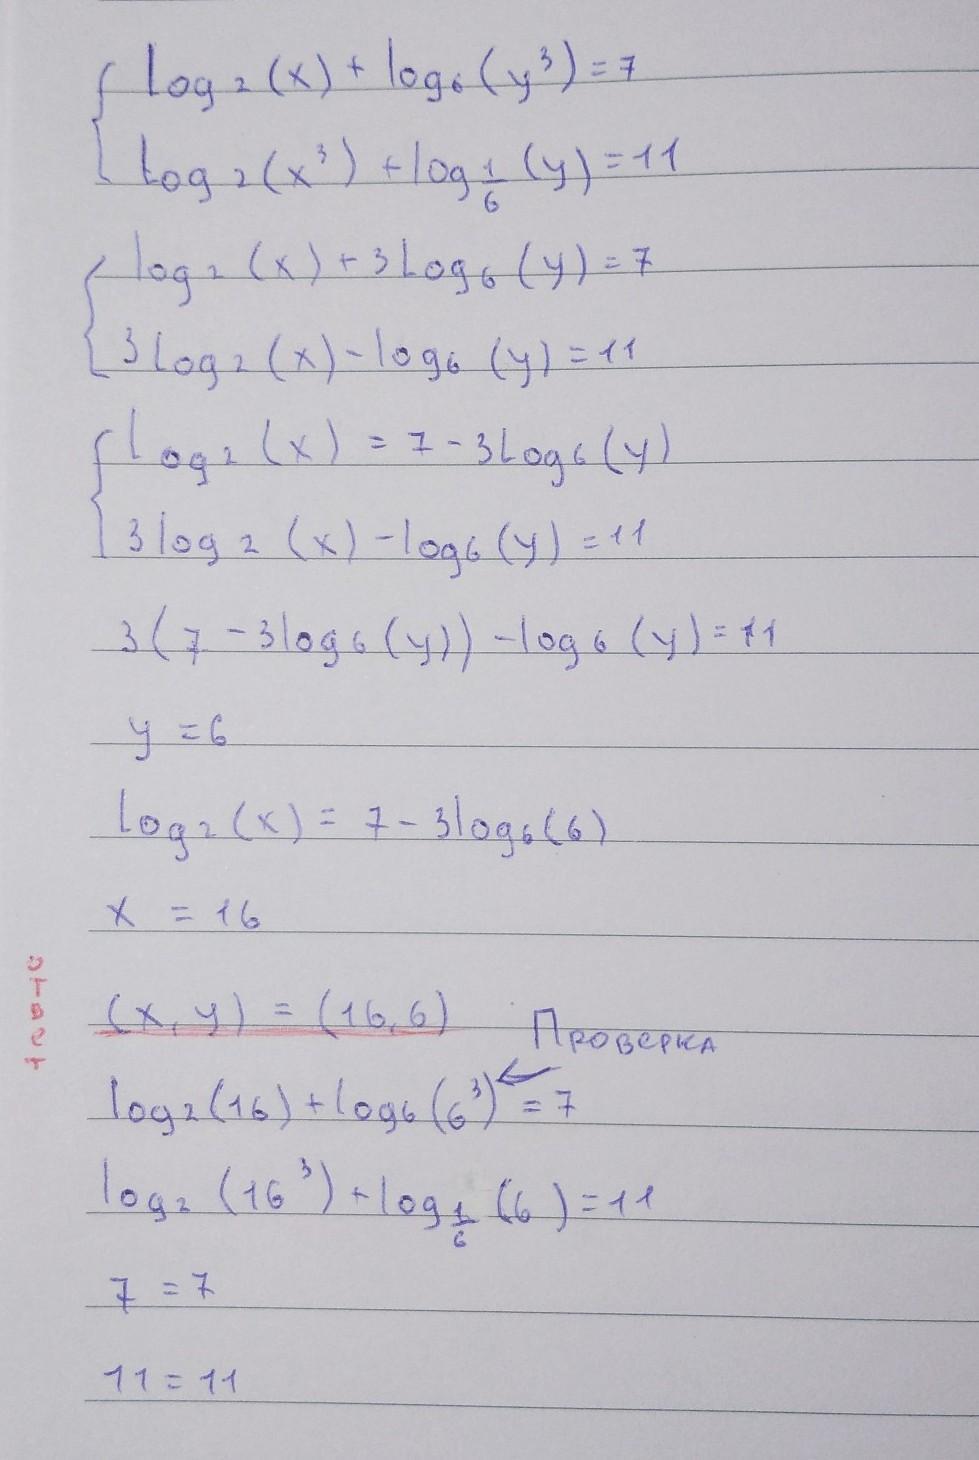 log₂(x) + log₆(y³) = 7
log₂(x³) + log_{1/6}(y) = 11
log₂(x) + 3log₆(y) = 7
3log₂(x) - log₆(y) = 11
log₂(x) = 7 - 3log₆(y)
3log₂(x) - log₆(y) = 11
3(7 - 3log₆(y)) - log₆(y) = 11
y = 6
log₂(x) = 7 - 3log₆(6)
x = 16
ответ
(x, y) = (16, 6)
Проверка
log₂(16) + log₆(6³) = 7
log₂(16³) + log_{1/6}(6) = 11
7 = 7
11 = 11